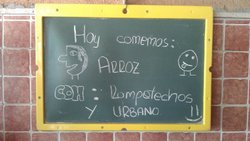 Hoy comemos:
ARROZ
CON: Rompetechos
Y URBANO